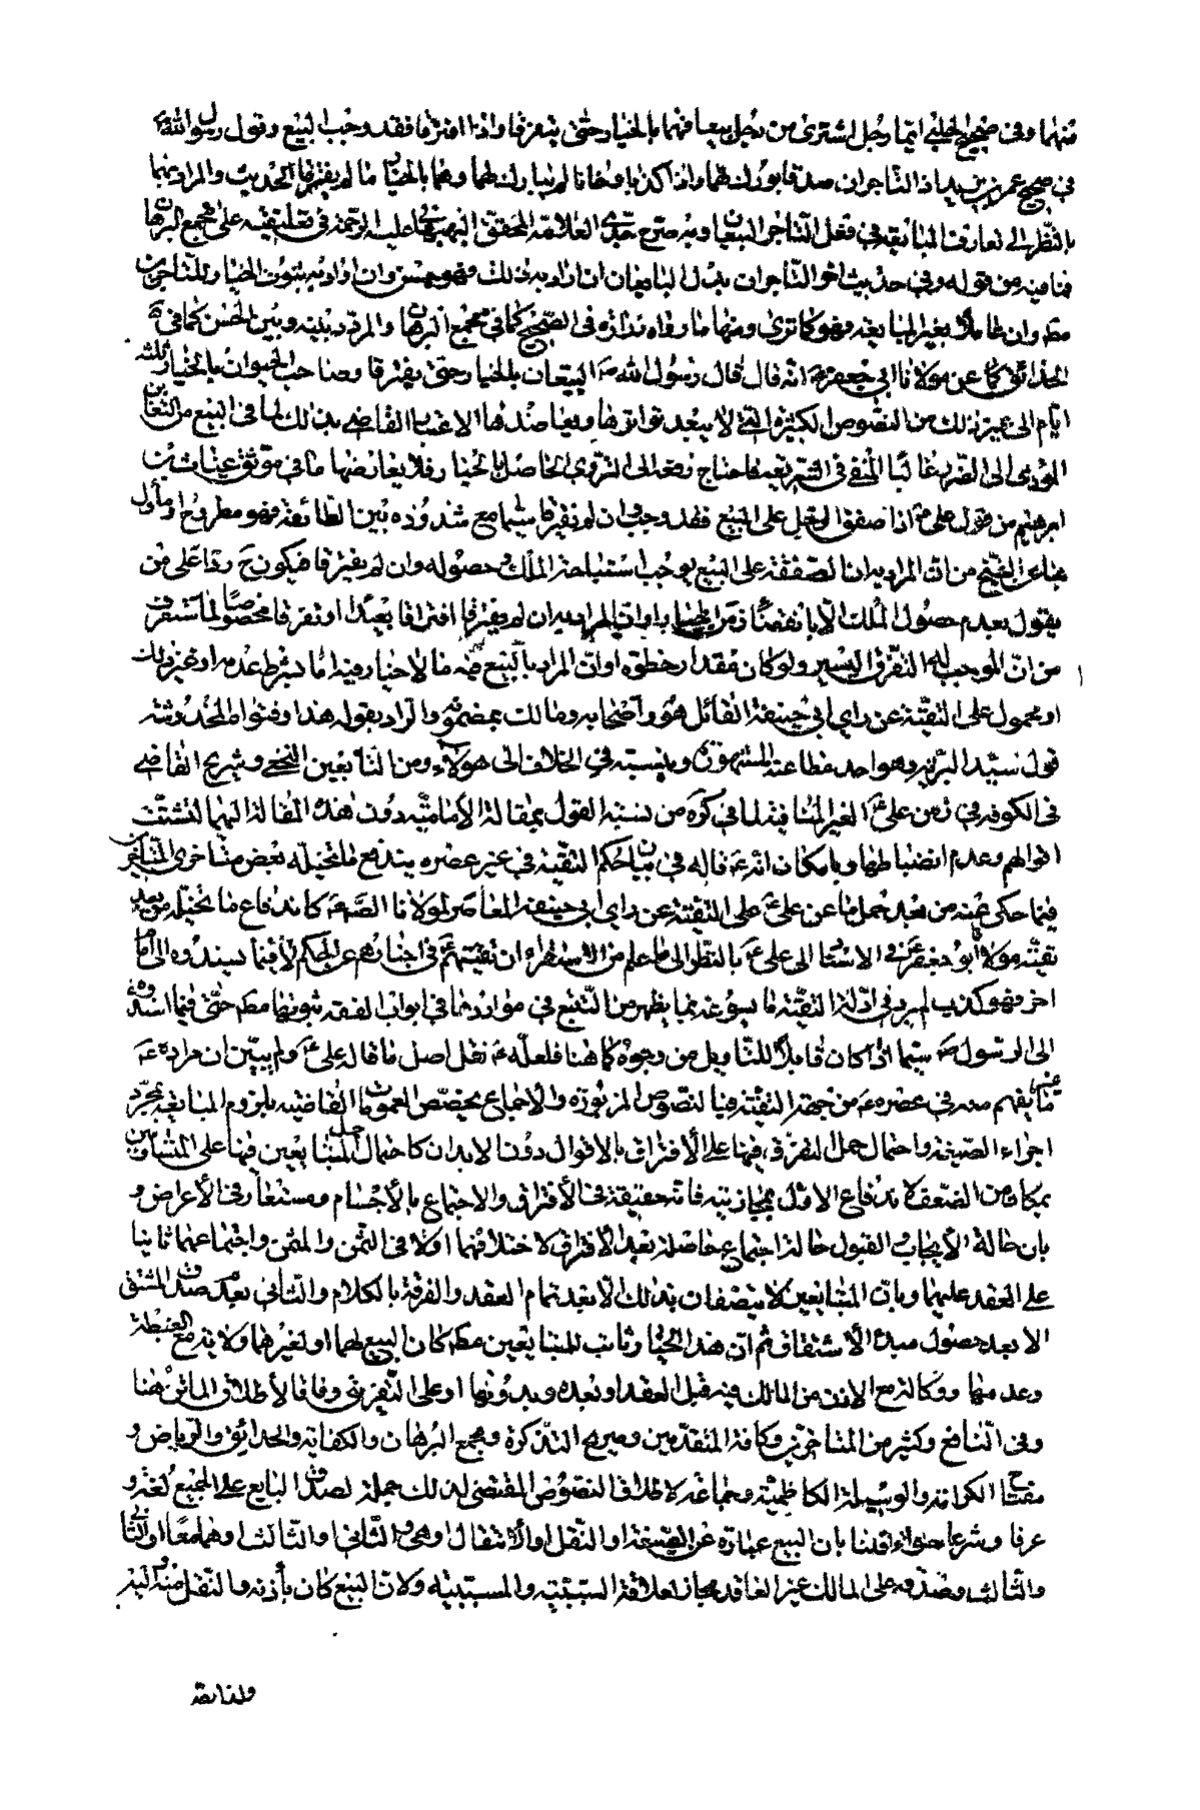 منهما وفى صحيح الحلبي ايّما رجل اشترى من رجل بيعا فهما بالخيار حتى يتفرقا واذا افترقا فقد وجب البيع وقول رسول الله ص
فى صحيح عمر بن يزيد اذ التاجران صدقا بورك لهما واذا كذبا وخانا لم يبارك لهما وهما بالخيار ما لم يفترقا الحديث والمراد بهما
بالنظر الى تعارف المبايعة فى فعل التاجر البيعان وبه صرح جدى العلامة المحقق البهبهانى عليه الرحمة فى تعليقته على مجمع البرهان
فما فيه من قوله وفى حديث اخر التاجران بدل البايعان ان اراد به ذلك فهو حسن وان اراد به ثبوت الخيار للتاجرين
مطه وان عاملا بغير المبايعة فهو كما ترى ومنها ما رواه زرارة فى الصحيح كما فى مجمع البرهان والمردد بينه وبين الحسن كما فى
الحدائق كا عن مولانا ابى جعفر ع انه قال قال رسول الله ص البيعان بالخيار حتى يفترقا وصاحب الحيوان بالخيار ثلثة
ايّام الى غير ذلك من النصوص الكثيرة التى لا يبعد تواترها ويعاضدها الاعتبار القاضى بذلك لما فى البيع من التغابن
المؤدى الى الضرر غالبا المنفى فى الشريعة فاحتاج دفعه الى التروى الحاصل بالخيار فلا يعارضها ما فى موثق غياث بن
ابرهيم من قول على ع اذا صفق الرجل على البيع فقد وجب وان لم يفترقا سيما مع شذوذه بين الطائفة فهو مطروح او مأول
بما عن الشيخ من ان المراد به ان الصفقة على البيع يوجب استباحة الملك وحصوله وان لم يفترقا فيكون ح ردا على من
يقول بعدم حصول الملك الا بانقضاء زمن الخيار او ان المراد به ان لم يفترقا افتراقا بعيدا او تفرقا مخصوصا لما ستعرف
من انّ الموجب له التفرق اليسير ولو كان مقدار خطوة او ان المراد بالبيع فيه ما لا خيار فيه اما بشرط عدمه او غير ذلك
او محمول على التقية عن راى ابى حنيفة القائل هو واصحابه ومالك بمضمونه والراد بقوله هذا وفتواه المحدوثة
قول سيد البرية وهو احد مطاعنه المشهورة وبنسبته فى الخلاف الى هؤلاء ومن التابعين النخعى وشريح القاضى
فى الكوفة فى زمن على ع الغير المنافية لما فى كره من نسبة القول بمقالة الامامية دون هذه المقالة اليهما لتشتت
اقوالهم وعدم انضباطها وبامكان انه ع قاله فى بيان حكم التقية فى غير عصره يندفع ما تخيله بعض متاخرى المتاخرين
فيما حكى عنه من بعد حمل ما عن على ع على التقية عن راى ابى حنيفة المعاصر لمولانا الصادق ع كاندفاع ما تخيله من بعد
تقية مولانا ابو جعفر ع فى الاستناد الى على ع بالنظر الى ما علم من الاستقراء ان تقيتهم ع فى اخبارهم عن الحكم لا فيما يسندوه الى امام
اخر فهو كذب لم يرد فى ادلة التقية ما يسوغه بما يظهر من التتبع فى مواردها فى ابواب الفقه ثبوتها مطه حتى فيما اسندوه
الى الرسول ص سيما اذا كان قابلا للتاويل من وجوه كما هنا فلعله ع نقل اصل ما قاله على ع ولم يبين ان مراده ع
ما يفهم منه فى عصره ع من جهة التقية فبالنصوص المزبورة والاجماع يخصص العمومات القاضيه بلزوم المبايعة بمجرد
اجراء الصيغة واحتمال حمل التفرق فيها على الافتراق بالاقوال دون الابدان كاحتمال حمل المتبايعين فيها على المتساومين
بمكان من الضعف لاندفاع الاول بمجازيته فانه حقيقة فى الافتراق والاجتماع بالاجسام ومستعار فى الاعراض و
بان حالة الايجاب القبول حالة اجتماع حاصلة بعد الافتراق لاختلافهما اولا فى الثمن والمثمن واجتماعهما ثانيا
على العقد عليهما وبان المتبايعين لا يتصفان بذلك الا بعد تمام العقد والفرقة بالكلام والثانى بعدم صدق المشتق
الا بعد حصول مبدء الاشتقاق ثم ان هذا الخيار ثابت للمتبايعين مطه كان البيع لهما او لغيرهما ولا يدمع الغبطة
وعدمها ووكالة مع الاذن من المالك فيه قبل العقد او بعده وبدونها او على التفريق وفاقا لاطلاق الماتن هنا
وفى النافع وكثير من المتاخرين وكافة المتقدمين وصريح التذكرة ومجمع البرهان والكفاية والحدائق والرياض و
مفتاح الكرامة والوسيلة الكاظمية وجماعة لاطلاق النصوص المقتضى لذلك جملة لصدق البايع على الجميع لغة و
عرفا وشرعا حتى اذا قلنا بان البيع عبارة عن الصيغة او النقل او الانتقال او هى والثانى او الثالث او هما معا او الثانى
والثالث وصدقه على المالك غير العاقد مجاز لعلاقة السببية والمسببية ولان البيع كان بأذنه والنقل منه اليه
ولغايته